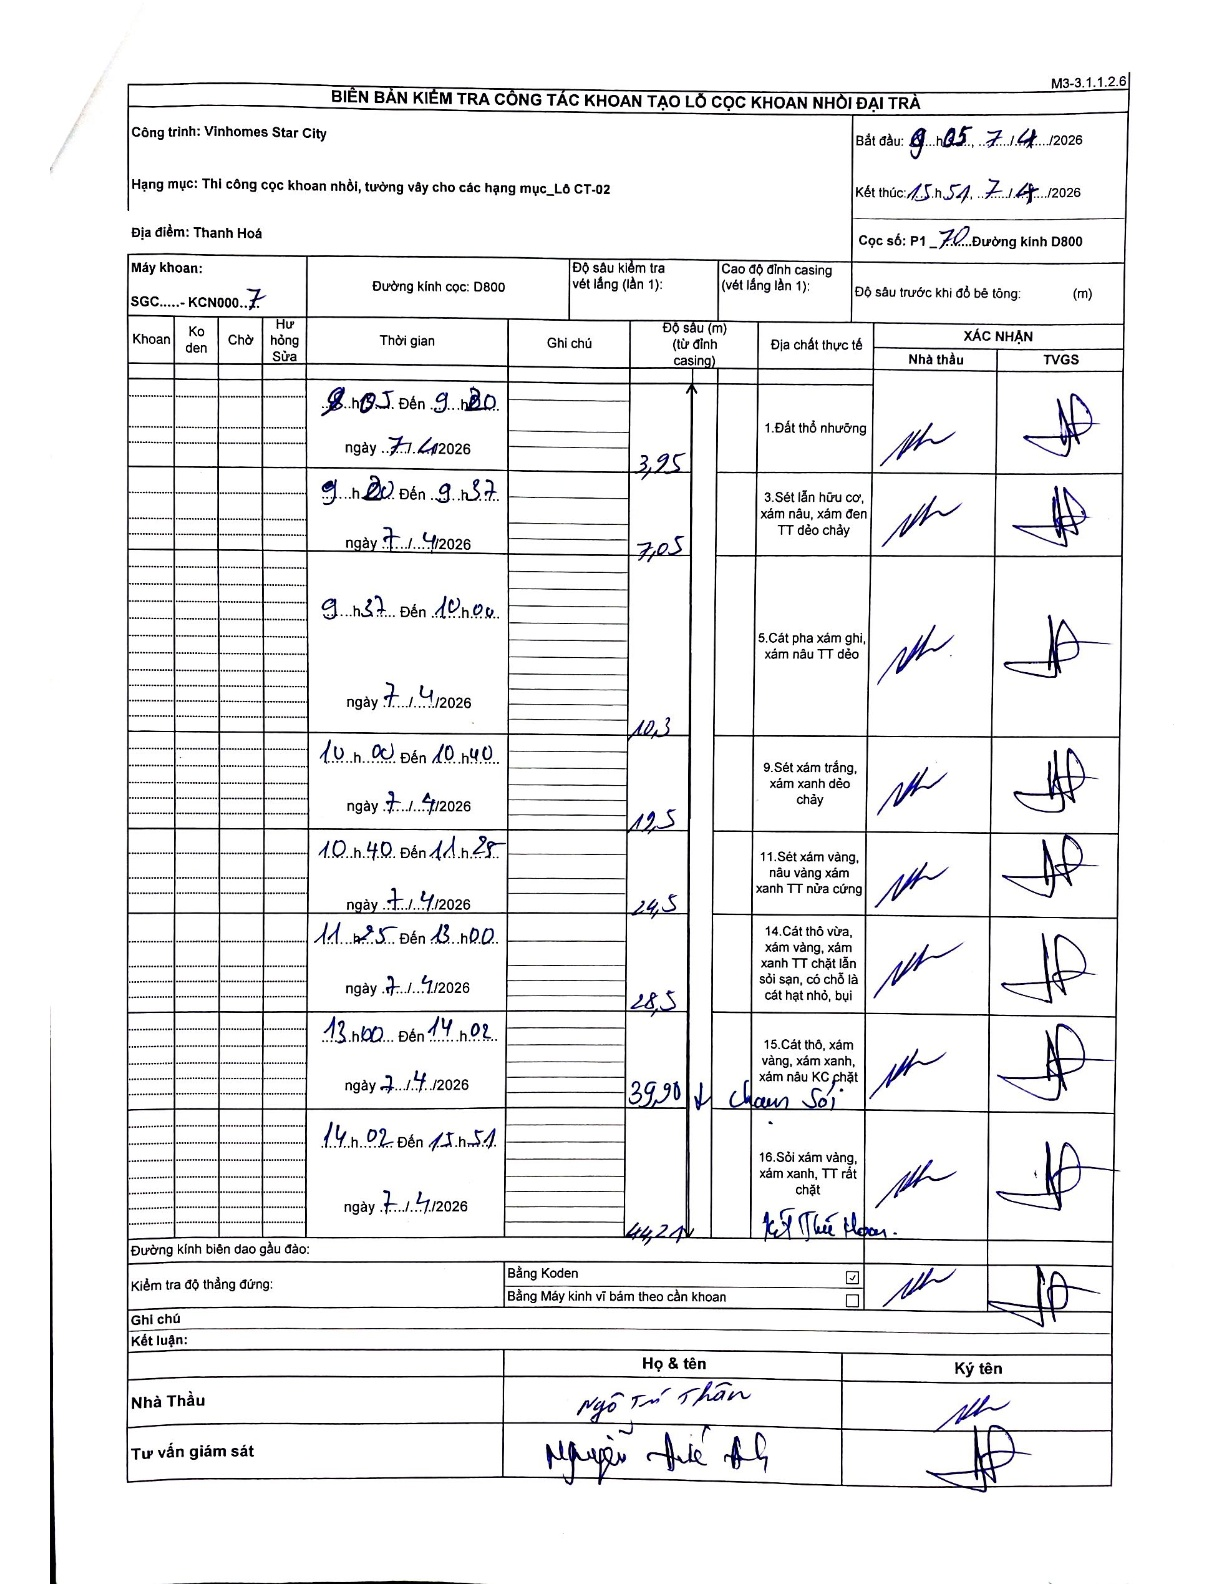 M3-3.1.1.2.6
BIÊN BẢN KIỂM TRA CÔNG TÁC KHOAN TẠO LỖ CỌC KHOAN NHỒI ĐẠI TRÀ
Công trình: Vinhomes Star City
Bắt đầu: 9 h 05, 7/4/2026
Hạng mục: Thi công cọc khoan nhồi, tường vây cho các hạng mục_Lô CT-02
Kết thúc: 15 h 51, 7/4/2026
Địa điểm: Thanh Hoá
Cọc số: P1_70...Đường kính D800
Máy khoan:
SGC.....- KCN000..7
Đường kính cọc: D800
Độ sâu kiểm tra vét lắng (lần 1):
Cao độ đỉnh casing (vét lắng lần 1):
Độ sâu trước khi đổ bê tông: (m)
Khoan
Ko den
Chờ
Hư hỏng Sửa
Thời gian
Ghi chú
Độ sâu (m) (từ đỉnh casing)
Địa chất thực tế
XÁC NHẬN
Nhà thầu
TVGS
h 05 Đến 9 h 20
ngày 7/4/2026
3,95
1.Đất thổ nhưỡng
9 h 20 Đến 9 h 37
ngày 7/4/2026
7,05
3.Sét lẫn hữu cơ, xám nâu, xám đen TT dẻo chảy
9 h 37 Đến 10 h 00
ngày 7/4/2026
10,3
5.Cát pha xám ghi, xám nâu TT dẻo
10 h 00 Đến 10 h 40
ngày 7/4/2026
19,5
9.Sét xám trắng, xám xanh dẻo chảy
10 h 40 Đến 11 h 25
ngày 7/4/2026
24,5
11.Sét xám vàng, nâu vàng xám xanh TT nửa cứng
11 h 25 Đến 13 h 00
ngày 7/4/2026
28,5
14.Cát thô vừa, xám vàng, xám xanh TT chặt lẫn sỏi sạn, có chỗ là cát hạt nhỏ, bụi
13 h 00 Đến 14 h 02
ngày 7/4/2026
39,90
15.Cát thô, xám vàng, xám xanh, xám nâu KC chặt
Chạm Sỏi
14 h 02 Đến 15 h 51
ngày 7/4/2026
44,21
16.Sỏi xám vàng, xám xanh, TT rất chặt
Kết Thúc Khoan.
Đường kính biên dao gầu đào:
Kiểm tra độ thẳng đứng:
Bằng Koden
Bằng Máy kinh vĩ bám theo cần khoan
Ghi chú
Kết luận:
Họ & tên
Ký tên
Nhà Thầu
Ngô Trí Thân
Tư vấn giám sát
Nguyễn